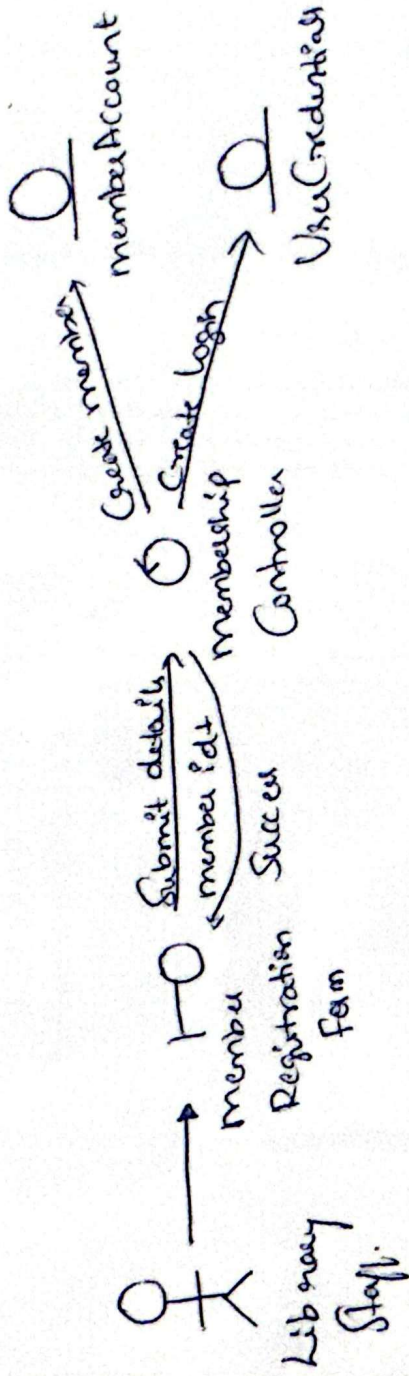 Library
Staff.
member
Registration
Form
Submit details
member id +
Success
membership
Controller
Create member
Create login
memberAccount
UserCredentials